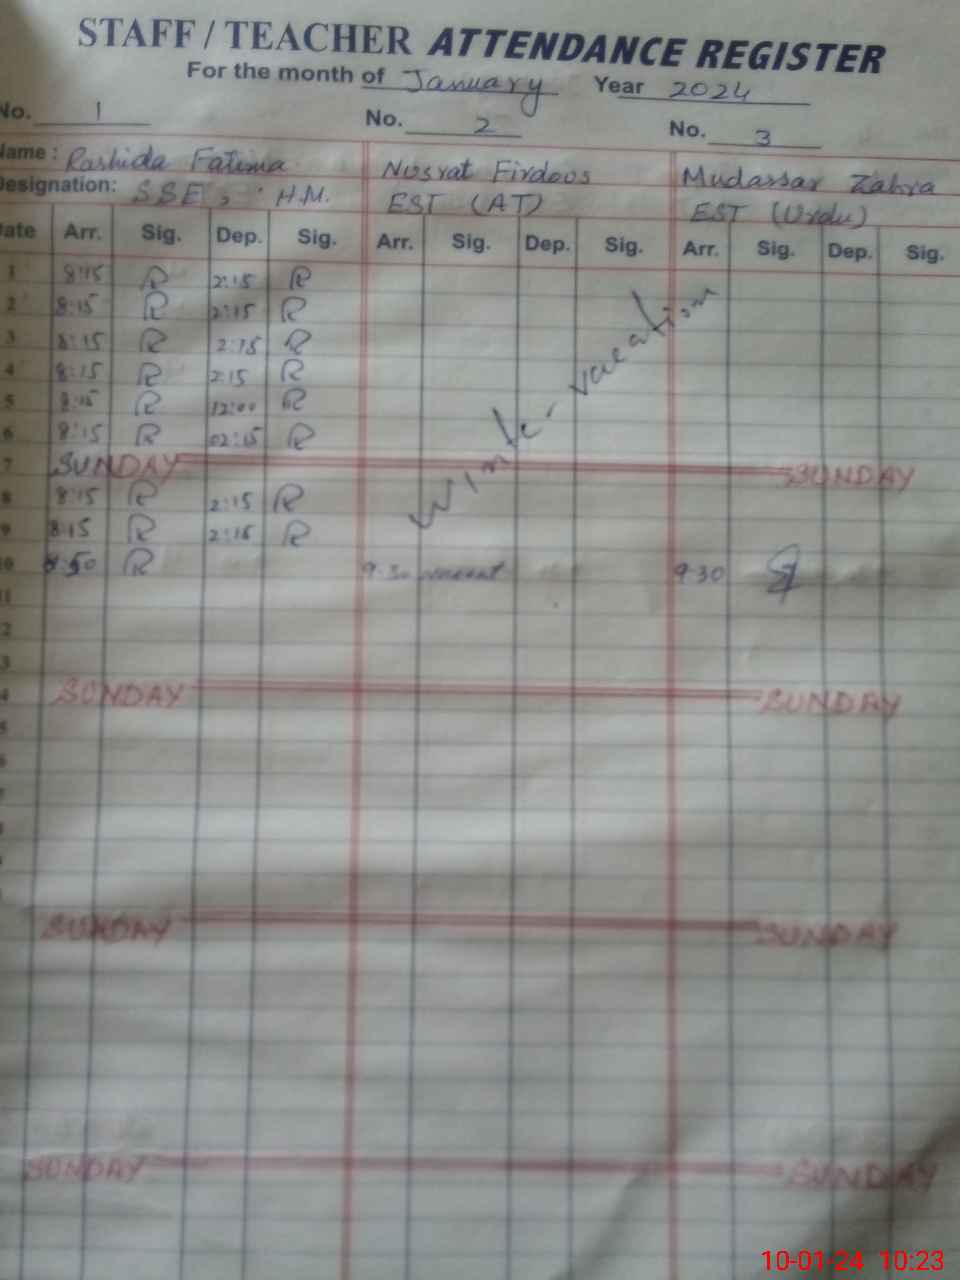 STAFF / TEACHER ATTENDANCE REGISTER
For the month of January Year 2024
No. 1 No. 2 No. 3
Name: Rashida Fatima Nusrat Firdoos Mudassar Zahra
Designation: SSE, H.M. EST (AT) EST (Urdu)
Date Arr. Sig. Dep. Sig. Arr. Sig. Dep. Sig. Arr. Sig. Dep. Sig.
1 8:15 R 2:15 R
2 8:15 R 2:15 R
3 8:15 R 2:15 R
4 8:15 R 2:15 R
5 8:15 R 12:00 R
6 8:15 R 02:15 R
Winter vacation
7 SUNDAY SUNDAY
8 8:15 R 2:15 R
9 8:15 R 2:15 R
10 :50 R 9:30 9:30
11
2
3
4 SUNDAY SUNDAY
5
SUNDAY SUNDAY
SUNDAY SUNDAY
10-01-24 10:23